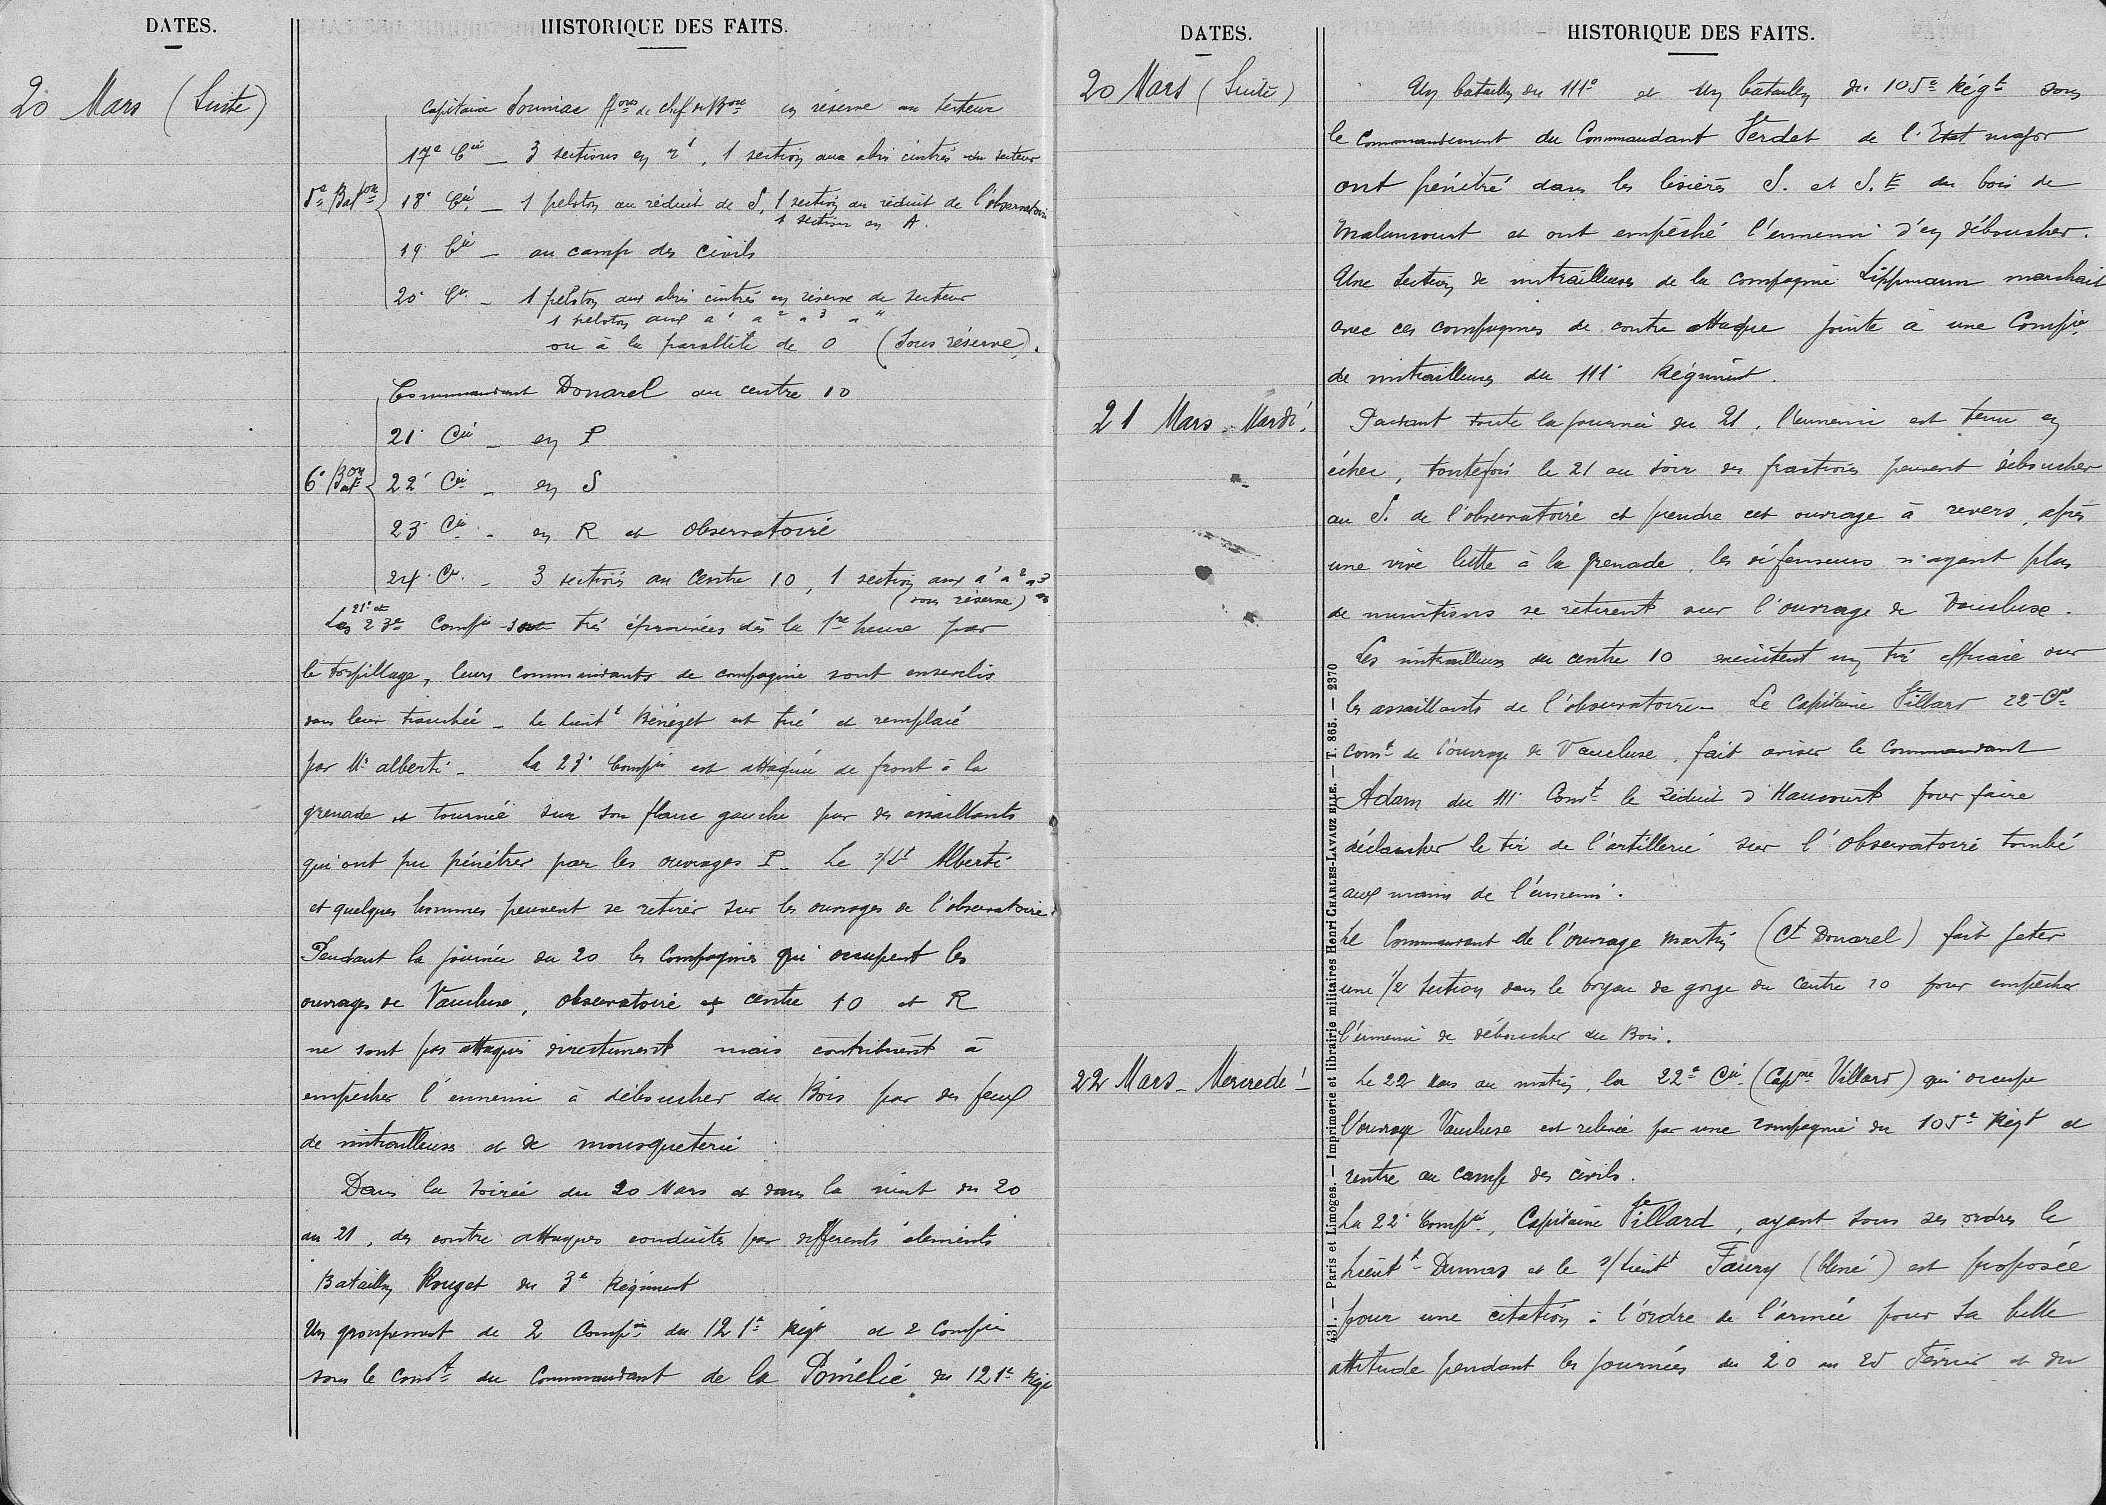 DATES.
HISTORIQUE DES FAITS.
20 Mars (Suite)
Capitaine Souniac ffons de chef de Bon en réserve au secteur
17e Cie — 3 sections en r1, 1 section aux abris cintrés du secteur
5e Baton
18e Cie — 1 peloton au réduit de S, 1 section au réduit de l'observatoire
1 section en A.
19e Cie — au camp des civils
20e Cie — 1 peloton aux abris cintrés en réserve de secteur
1 peloton aux a1 a2 a3 a4
ou à la parallèle de O (sous réserve).
Commandant Donarel au centre 10
21e Cie — en P
6e Baton
22e Cie — en S
23e Cie — en R et Observatoire
24e Cie — 3 sections au Centre 10, 1 section aux a1 a2 a3
(sous réserve)
21e et
Les 23e Compie sont très éprouvées dès la 1re heure par
le torpillage, leurs commandants de compagnie sont ensevelis
dans leur tranchée — Le Lieutt Bénézet est tué et remplacé
par Mr Alberti — La 23e Compie est attaquée de front à la
grenade et tournée sur son flanc gauche par des assaillants
qui ont pu pénétrer par les ouvrages P — Le s/Lt Alberti
et quelques hommes peuvent se retirer sur les ouvrages de l'observatoire.
Pendant la journée du 20 les Compagnies qui occupent les
ouvrages de Vaucluse, observatoire et centre 10 et R
ne sont pas attaqués directement mais contribuent à
empêcher l'ennemi à déboucher du Bois par des feux
de mitrailleuses et de mousqueterie
Dans la soirée du 20 Mars et dans la nuit du 20
au 21, des contre attaques conduites par différents éléments
Bataillon Rouget du 3e Régiment
Un groupement de 2 Compies du 121e Régt et 2 Compies
sous le comdt du Commandant de la Pomélie du 121e Régt
DATES.
HISTORIQUE DES FAITS.
20 Mars (Suite)
Un bataillon du 111e et Un bataillon du 105e Régt sous
le Commandement du Commandant Verdet de l'Etat major
ont pénétré dans les lisières S. et S.E du bois de
Malancourt et ont empêché l'ennemi d'en déboucher.
Une Section de mitrailleuses de la compagnie Lippmann marchait
avec ces compagnies de contre attaque jointe à une Compie
de mitrailleuses du 111e Régiment.
21 Mars — Mardi.
Pendant toute la journée du 21, l'ennemi est tenu en
échec, toutefois le 21 au soir des fractions peuvent déboucher
au S. de l'observatoire et prendre cet ouvrage à revers, après
une vive lutte à la grenade, les défenseurs n'ayant plus
de munitions se retirent sur l'ouvrage de Vaucluse.
Les mitrailleuses du centre 10 exécutent un tir efficace sur
les assaillants de l'observatoire — Le Capitaine Villard 22e Cie
comt de l'ouvrage de Vaucluse, fait aviser le commandant
Adam du 111e Comt le réduit d'Haucourt pour faire
déclancher le tir de l'artillerie sur l'Observatoire tombé
aux mains de l'ennemi.
Le Commandant de l'ouvrage Martin (Ct Donarel) fait jeter
une 1/2 section dans le boyau de gorge du Centre 10 pour empêcher
l'ennemi de déboucher du Bois.
22 Mars — Mercredi —
Le 22 Mars au matin, la 22e Cie (Capne Villard) qui occupe
l'ouvrage Vaucluse est relevée par une compagnie du 105e Régt et
rentre au camp des civils.
La 22e Compie, Capitaine Villard, ayant sous ses ordres le
Lieutt Dumas et le s/Lieutt Faury (blessé) est proposée
pour une citation à l'ordre de l'armée pour sa belle
attitude pendant les journées du 20 au 25 Février et du
431. — Paris et Limoges. — Imprimerie et librairie militaires Henri CHARLES-LAVAUZELLE. — T. 865. — 2370